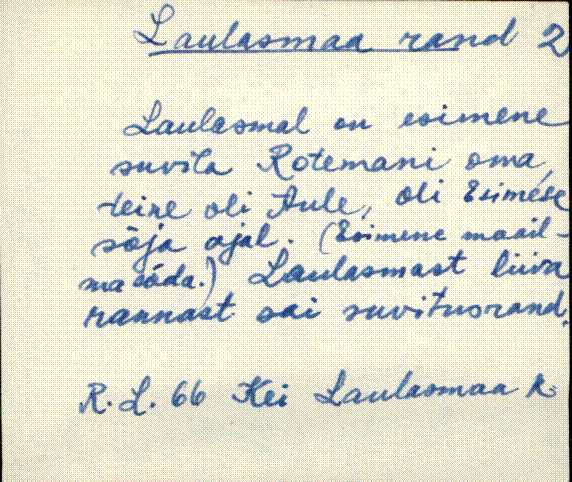 Laulasmaa rand 2
Laulasmal on esimene
suvila Rotemani oma,
teine oli Aule, oli Esimese
sõja ajal. (Esimene maail-
ma sõda.) Laulasmast liiva
rannast sai suvitusrand.
R. L. 66 Kei Laulasmaa k.